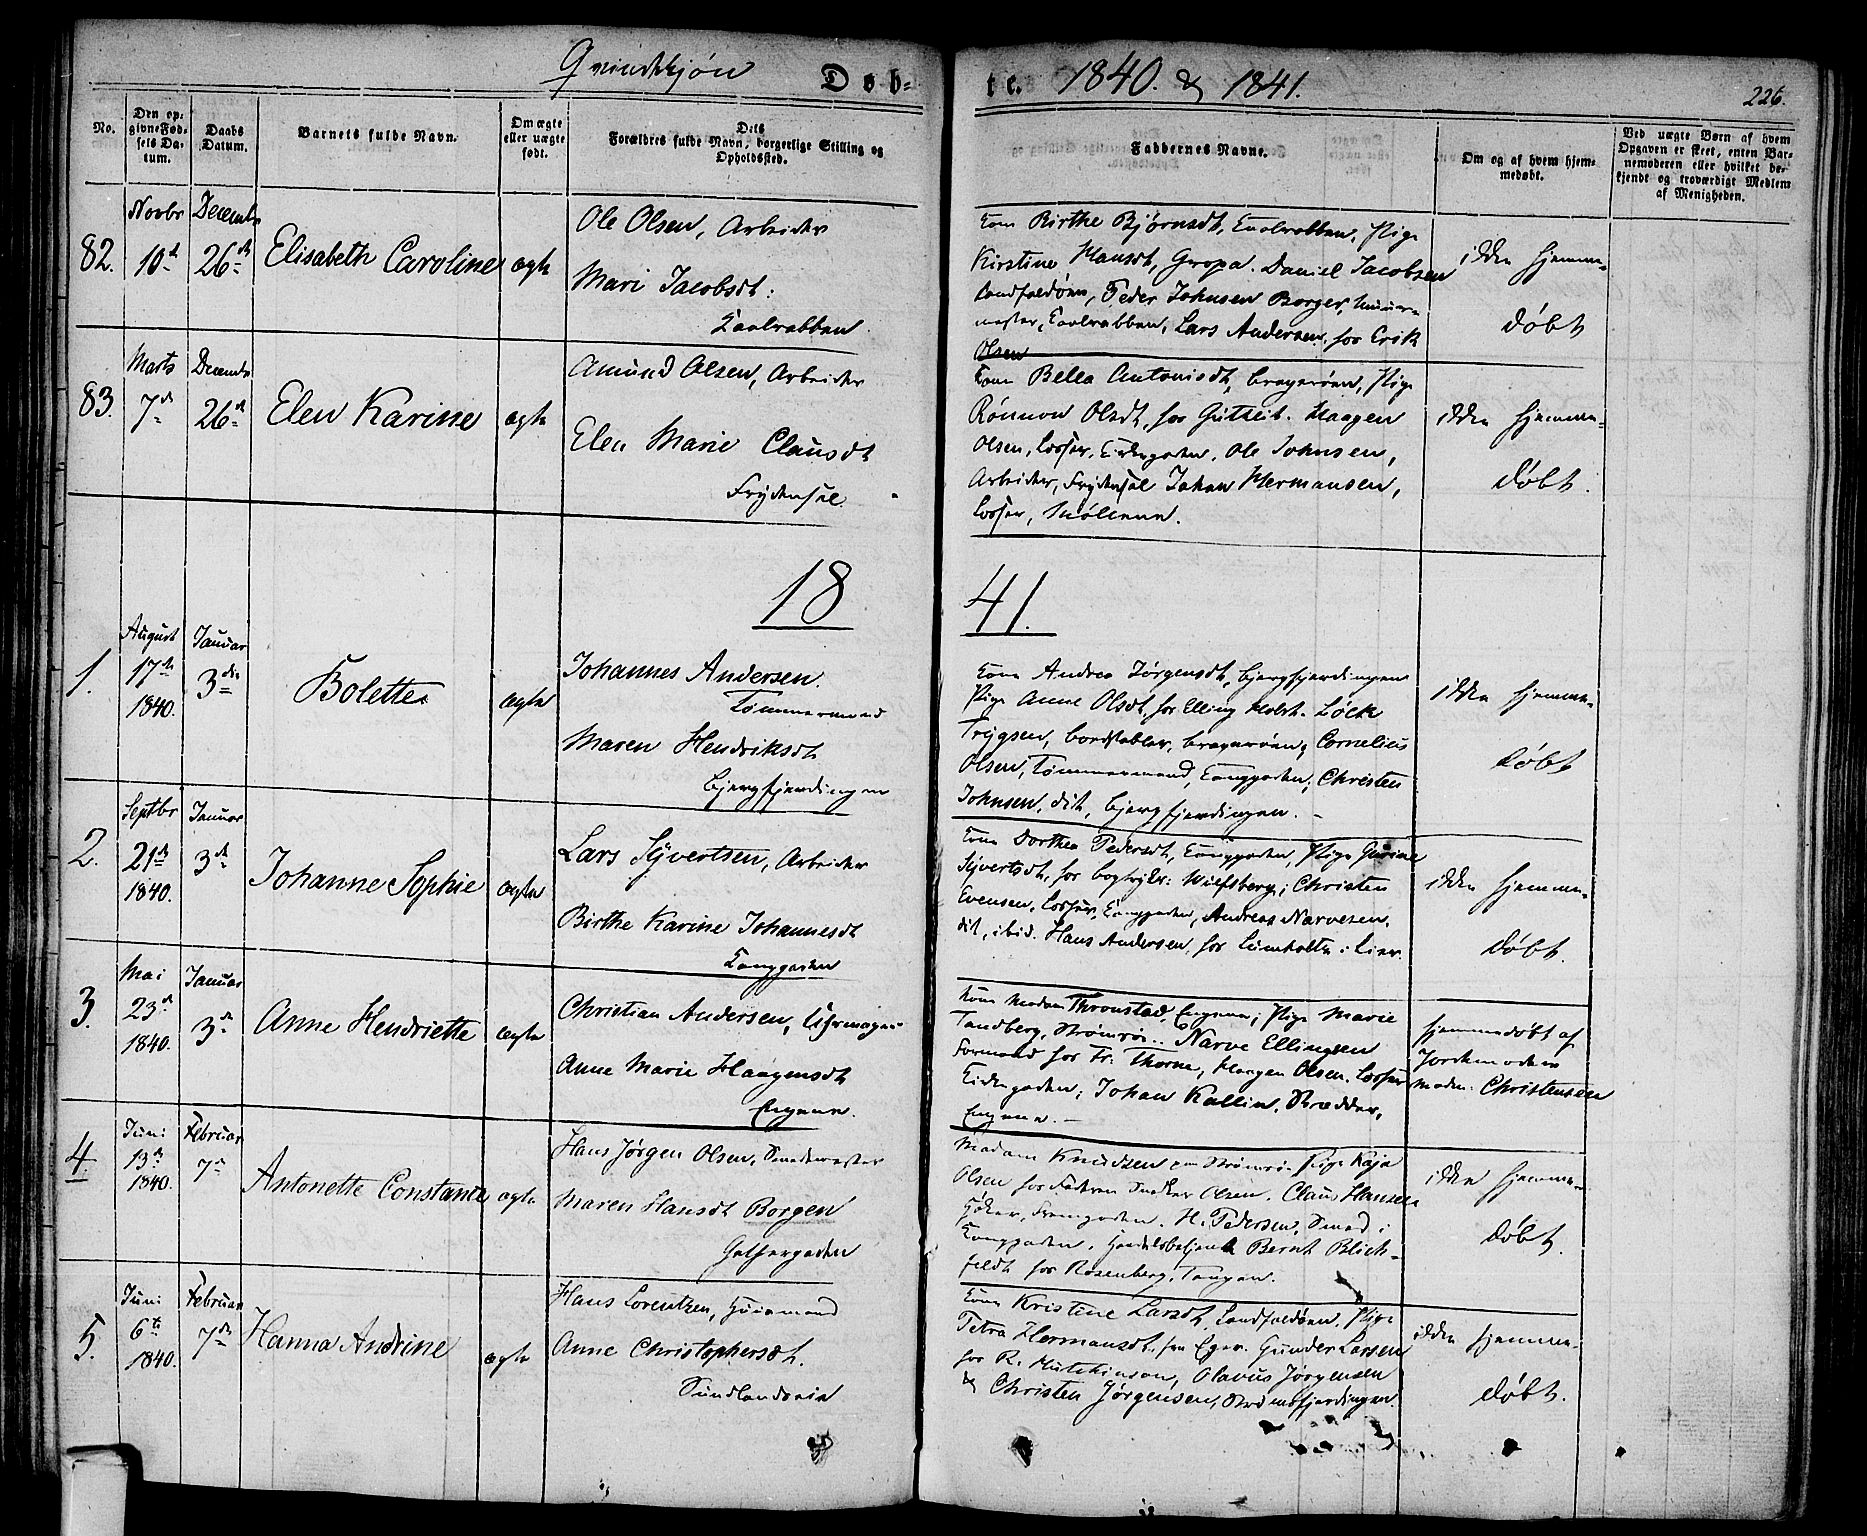 Qvindekjøn Døb-
te. 1840. & 1841.
226.
No.
Den op-
givne Fød-
sels Da-
tum.
Daabs
Datum.
Barnets fulde Navn.
Om ægte
eller uægte
født.
Dets
Forældres fulde Navn, borgerlige Stilling og
Opholdssted.
Faddernes Navne.
Om og af hvem hjem-
medøbt.
Ved uægte Børn af hvem
Opgaven er skeet, enten Bar-
nemoderen eller hvilket be-
kjendt og troværdigt Medlem
af Menigheden.
82.
Novbr
10d
Decembr
26de
Elisabeth Caroline
ægte
Ole Olsen, Arbeider
Mari Jacobsdt:
Kaalrabben
Kone Birthe Bjørnsdt, Kaalrabben, Pige
Kirstine Hansdt, Daniel Jacobsen
Landfaldøen, Peder Johnsen Borger, Muur-
mester, Kaalrabben, Lars Andersen, for Erik
Olsen
ikke hjemme-
døbt
83.
Marts
7de
Decembr
26de
Elen Karine
ægte
Amund Olsen, Arbeider
Elen Marie Clausdt
Frydensal.
Kone Bella Antonisdt, Bragerøen, Pige
Rønnow Olsdt, for Gutzeit. Haagen
Olsen, Losser, Kirkegaden, Ole Johnsen,
Arbeider, Frydensal Johan Hermansen,
Losser, Møllerne.
ikke hjemme-
døbt.
1841.
1.
August
17de
1840.
Januar
3die
Bolette
ægte
Johannes Andersen.
Tømmermand
Maren Hendriksdt
Bjergfjerdingen
Kone Andrea Jørgensdt, Bjergfjerdingen
Pige Anne Olsdt, for Elling Holst. Løck
Trygsen, Bordstabler, Bragerøen; Cornelius
Olsen, Tømmermand, Konggaden; Christen
Johnsen, dit, Bjergfjerdingen. –
ikke hjemme-
døbt
2.
Septbr
21de
1840.
Januar
3de
Johanne Sophie
ægte
Lars Syvertsen, Arbeider
Birthe Karine Johannesdt
Konggaden
Kone Dorthea Pedersdt, Konggaden, Pige Gurine
Syvertsdt, for Bogtrykk: Wulfsberg; Christen
Evensen, Losser, Konggaden, Andreas Narvesen,
dit, ibid. Hans Andersen, for Lumholtz i Lier.
ikke hjemme-
døbt.
3.
Mai
23de
1840.
Januar
3de
Anne Hendriette
ægte
Christian Andersen, Uhrmager
Anne Marie Haagensdt
Engene.
Kone Madam Thronstad, Engene; Pige Marie
Tandberg, Strømsø.. Narve Ellingsen
Formand for Fr. Thorne, Haagen Olsen, Losser
Kirkegaden; Johan Kallin, Skrædder,
Engene. –
hjemmedøbt af
Jordemoder
Madm: Christensen
4.
Juni
13de
1840.
Februar
7de
Antonette Constance
ægte
Hans Jørgen Olsen, Smedmester
Maren Hansdt Borgen
Gathergaden
Madam Knudsen paa Strømsø. Pige Kaja
Olsen for Faderen Snedker Olsen. Claus Hansen
Høker, H. Pedersen, Smed i
Konggaden, Handelsbetjent Bernt Blich-
feldt for Rosenberg, Tangen.
ikke hjemme-
døbt.
5.
Juni
6te
1840.
Februar
7de
Hanna Andrine
ægte
Hans Lorentzen, Huusmand
Anne Christophersdt.
Sundlandseie
Kone Kristine Larsdt, Landfaldøen, Pige
Petra Hermansdt, fra Eger. Gunder Larsen
for R. Hutchinson, Olavus Jørgensen
& Christen Jørgensen, Strømsfjerdingen
ikke hjemme-
døbt.